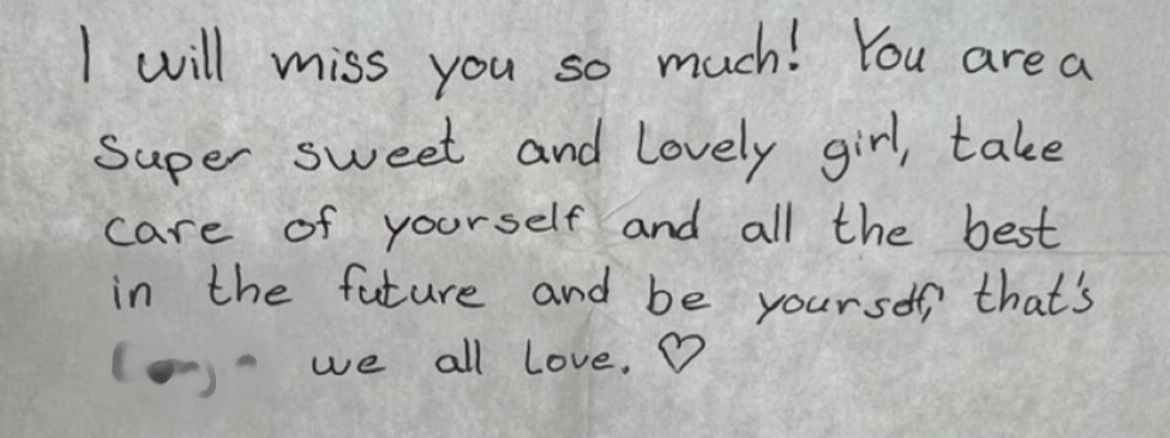 I will miss you so much! You are a
super sweet and lovely girl, take
care of yourself and all the best
in the future and be yourself, that's
we all love. ♡